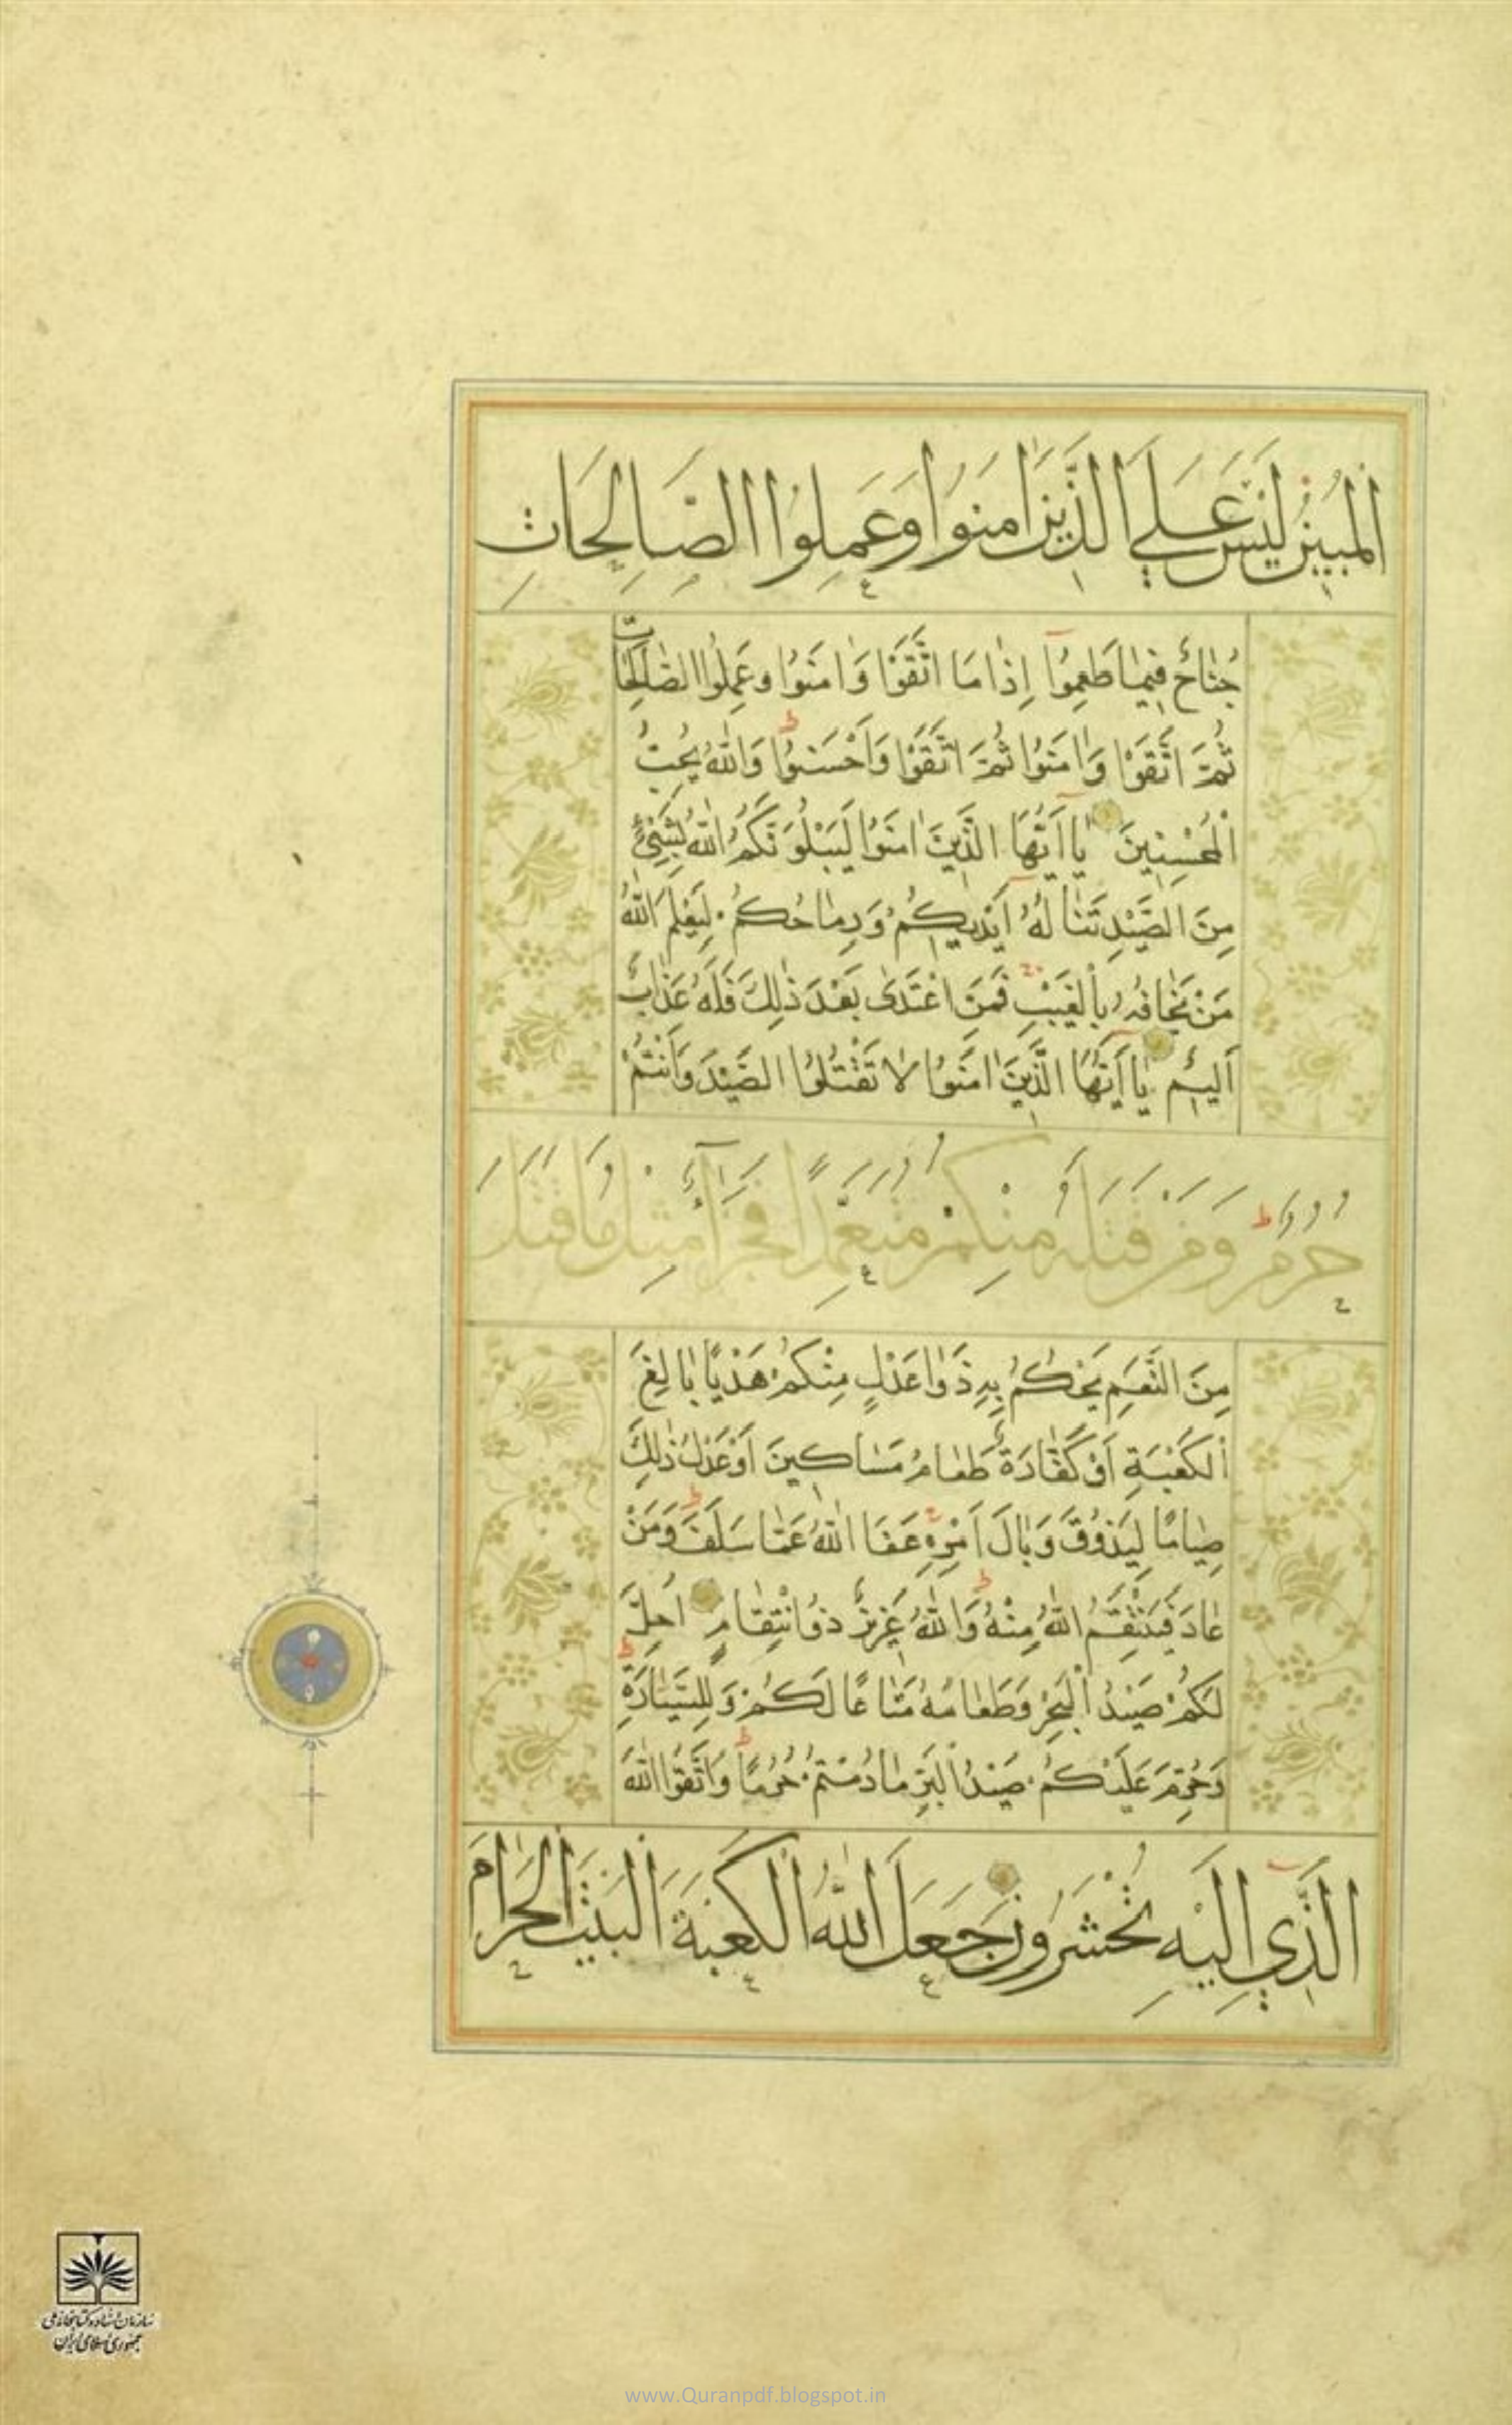 الْمُبِينُ لَيْسَ عَلَي الَّذِينَ اٰمَنُوا وَعَمِلُوا الصَّالِحَاتِ
جُنٰاحٌ فِيمٰا طَعِمُوٓا اِذٰا مَا اتَّقَوْا وَاٰمَنُوا وَعَمِلُوا الصّٰالِحٰاتِ
ثُمَّ اتَّقَوْا وَاٰمَنُوا ثُمَّ اتَّقَوْا وَاَحْسَنُوا وَاللّٰهُ يُحِبُّ
الْمُحْسِنِينَ يٰٓا اَيُّهَا الَّذِينَ اٰمَنُوا لَيَبْلُوَنَّكُمُ اللّٰهُ بِشَيْءٍ
مِنَ الصَّيْدِ تَنٰالُهُٓ اَيْدِيكُمْ وَرِمٰاحُكُمْ لِيَعْلَمَ اللّٰهُ
مَنْ يَخٰافُهُ بِالْغَيْبِ فَمَنِ اعْتَدٰى بَعْدَ ذٰلِكَ فَلَهُ عَذٰابٌ
اَلِيمٌ يٰٓا اَيُّهَا الَّذِينَ اٰمَنُوا لٰا تَقْتُلُوا الصَّيْدَ وَاَنْتُمْ
حُرُمٌ وَمَنْ قَتَلَهُ مِنْكُمْ مُتَعَمِّدًا فَجَزَآءٌ مِثْلُ مَا قَتَلَ
مِنَ النَّعَمِ يَحْكُمُ بِهِ ذَوٰا عَدْلٍ مِنْكُمْ هَدْيًا بٰالِغَ
الْكَعْبَةِ اَوْ كَفّٰارَةٌ طَعٰامُ مَسٰاكِينَ اَوْ عَدْلُ ذٰلِكَ
صِيٰامًا لِيَذُوقَ وَبٰالَ اَمْرِهِ عَفَا اللّٰهُ عَمّٰا سَلَفَ وَمَنْ
عٰادَ فَيَنْتَقِمُ اللّٰهُ مِنْهُ وَاللّٰهُ عَزِيزٌ ذُو انْتِقٰامٍ اُحِلَّ
لَكُمْ صَيْدُ الْبَحْرِ وَطَعٰامُهُ مَتٰاعًا لَكُمْ وَلِلسَّيّٰارَةِ
وَحُرِّمَ عَلَيْكُمْ صَيْدُ الْبَرِّ مٰا دُمْتُمْ حُرُمًا وَاتَّقُوا اللّٰهَ
الَّذِي اِلَيْهِ تُحْشَرُونَ جَعَلَ اللّٰهُ الْكَعْبَةَ الْبَيْتَ الْحَرٰامَ
سازمان اسناد و کتابخانه ملی
جمهوری اسلامی ایران
www.Quranpdf.blogspot.in